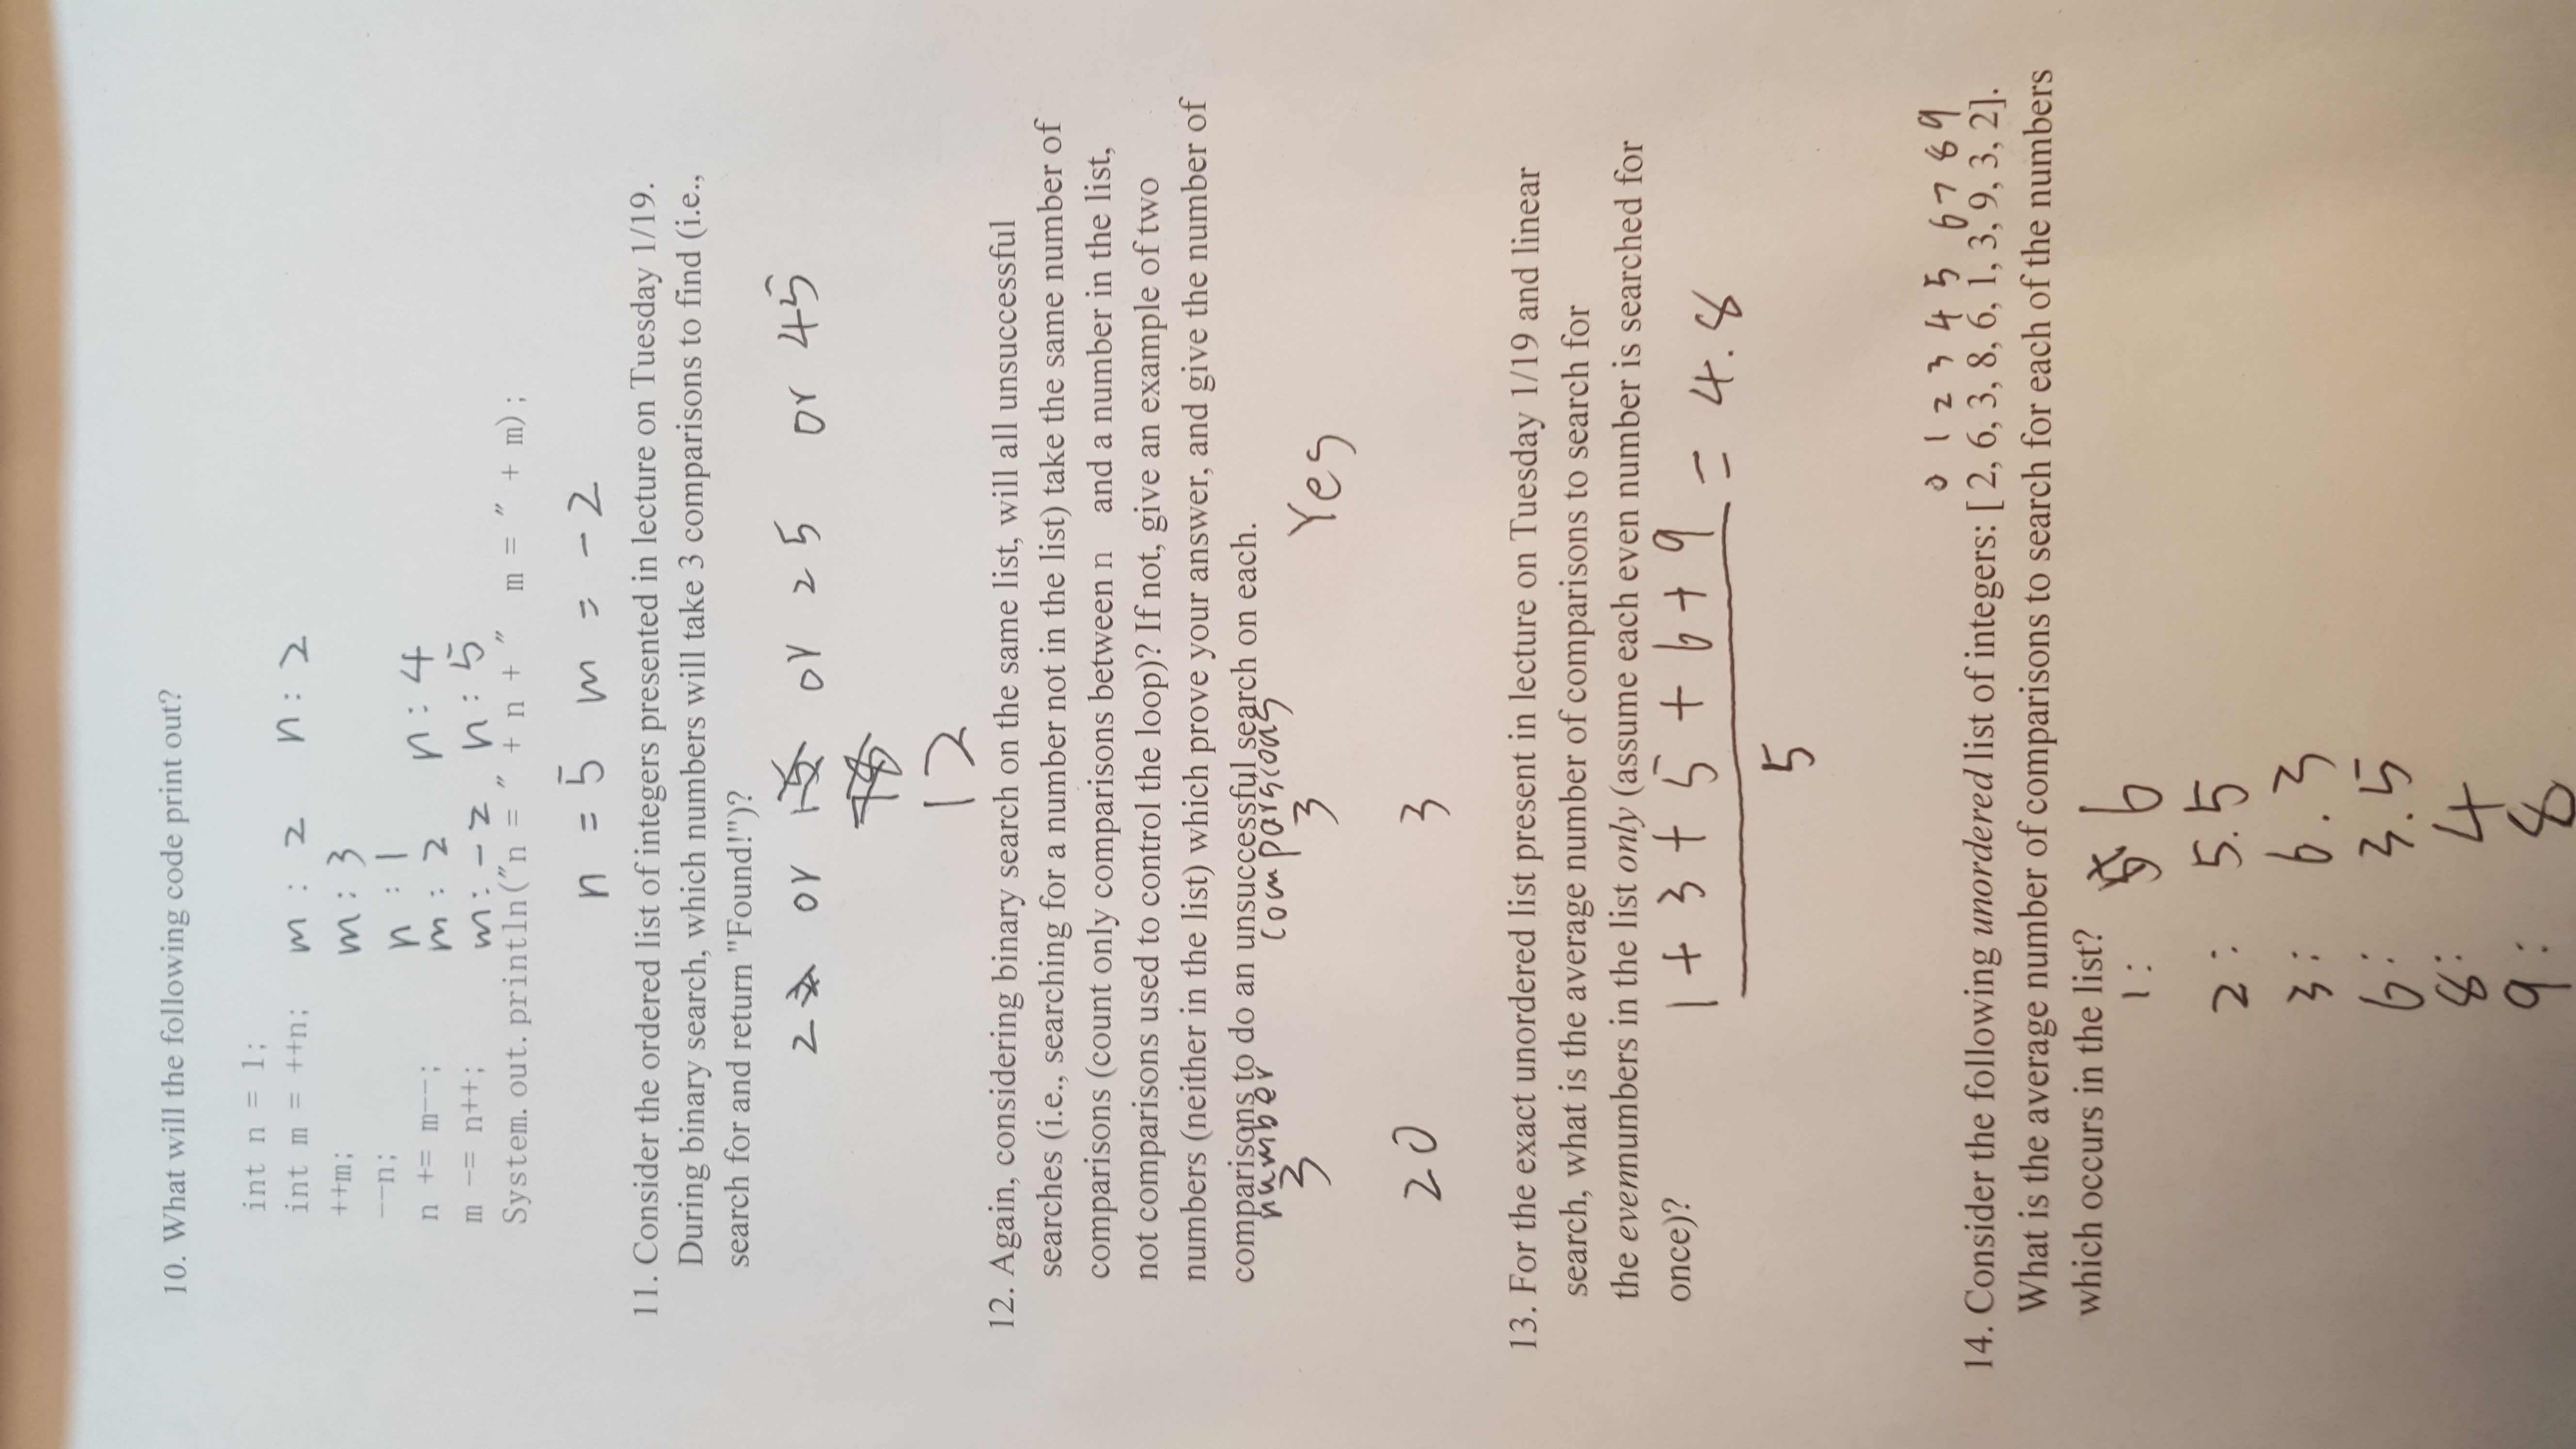 10. What will the following code print out?
int n = 1;
int m = ++n; m : 2 n : 2
++m; m : 3
--n; n : 1
n += m--; m : 2 n : 4
m -= n++; m : -2 n : 5
System.out.println("n = " + n + " m = " + m);
n = 5 m = -2
11. Consider the ordered list of integers presented in lecture on Tuesday 1/19.
During binary search, which numbers will take 3 comparisons to find (i.e.,
search for and return "Found!")?
2 or or 25 or 45
12
12. Again, considering binary search on the same list, will all unsuccessful
searches (i.e., searching for a number not in the list) take the same number of
comparisons (count only comparisons between n and a number in the list,
not comparisons used to control the loop)? If not, give an example of two
numbers (neither in the list) which prove your answer, and give the number of
comparisons to do an unsuccessful search on each.
number comparsions
3 3 Yes
20 3
13. For the exact unordered list present in lecture on Tuesday 1/19 and linear
search, what is the average number of comparisons to search for
the evennumbers in the list only (assume each even number is searched for
once)?
1 + 3 + 5 + 6 + 9 = 4.8
5
0 1 2 3 4 5 6 7 8 9
14. Consider the following unordered list of integers: [ 2, 6, 3, 8, 6, 1, 3, 9, 3, 2].
What is the average number of comparisons to search for each of the numbers
which occurs in the list?
1: 6
2: 5.5
3: 6.3
6: 3.5
8: 4
9: 8